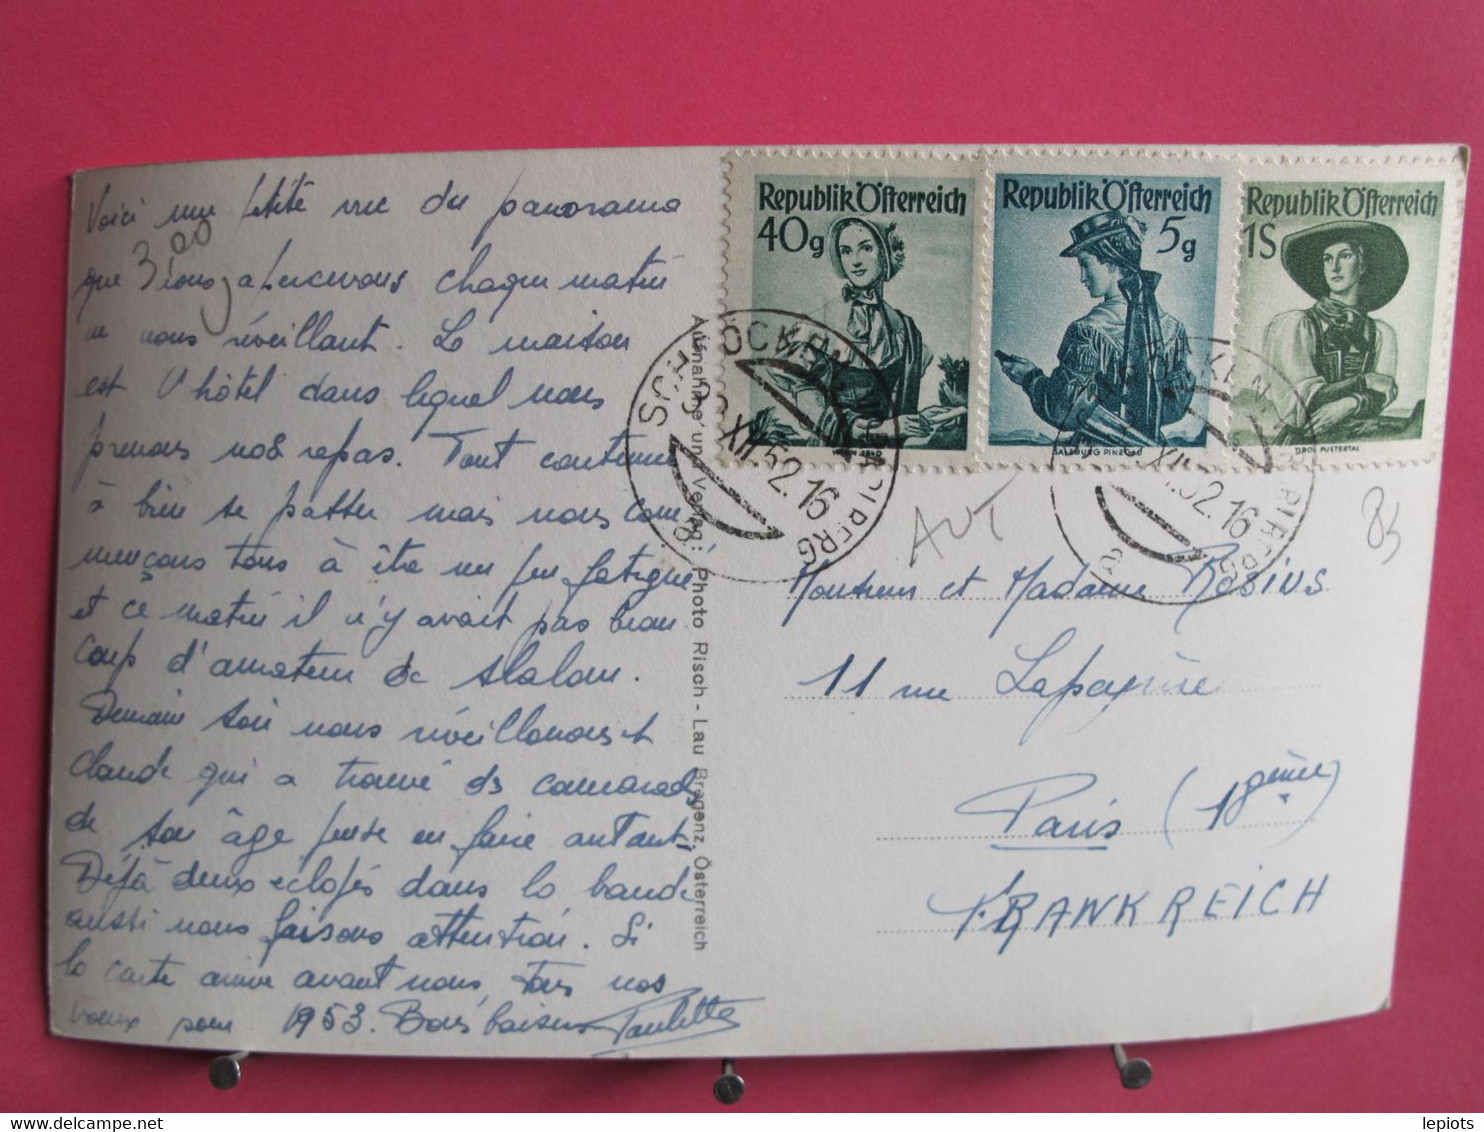 Voici une petite vue du panorama
3,00
que nous apercevons chaque matin
en nous réveillant. La maison
est l'hôtel dans lequel nous
prenons nos repas. Tout continue
à bien se passer mais nous com-
mençons tous à être un peu fatigué
et ce matin il n'y avait pas beau
coup d'amateur de slalom.
Demain soir nous réveillonons et
Claude qui a trouvé des camarades
de son âge pense en faire autant.
Déjà deux éclopés dans la bande
aussi nous faisons attention. Si
la carte arrive avant nous, tous nos
voeux pour 1953. Bons baisers Paulette
Aufnahme und Verlag: Photo Risch - Lau Bregenz, Österreich
Republik Österreich
40g
Republik Österreich
5g
SALZBURG PINZGAU
Republik Österreich
1S
TIROL PUSTERTAL
XII.52.16
XII.52.16
AUT
85
Monsieur et Madame ROSINS
11 rue
Paris (18ème)
FRANKREICH
lepiots